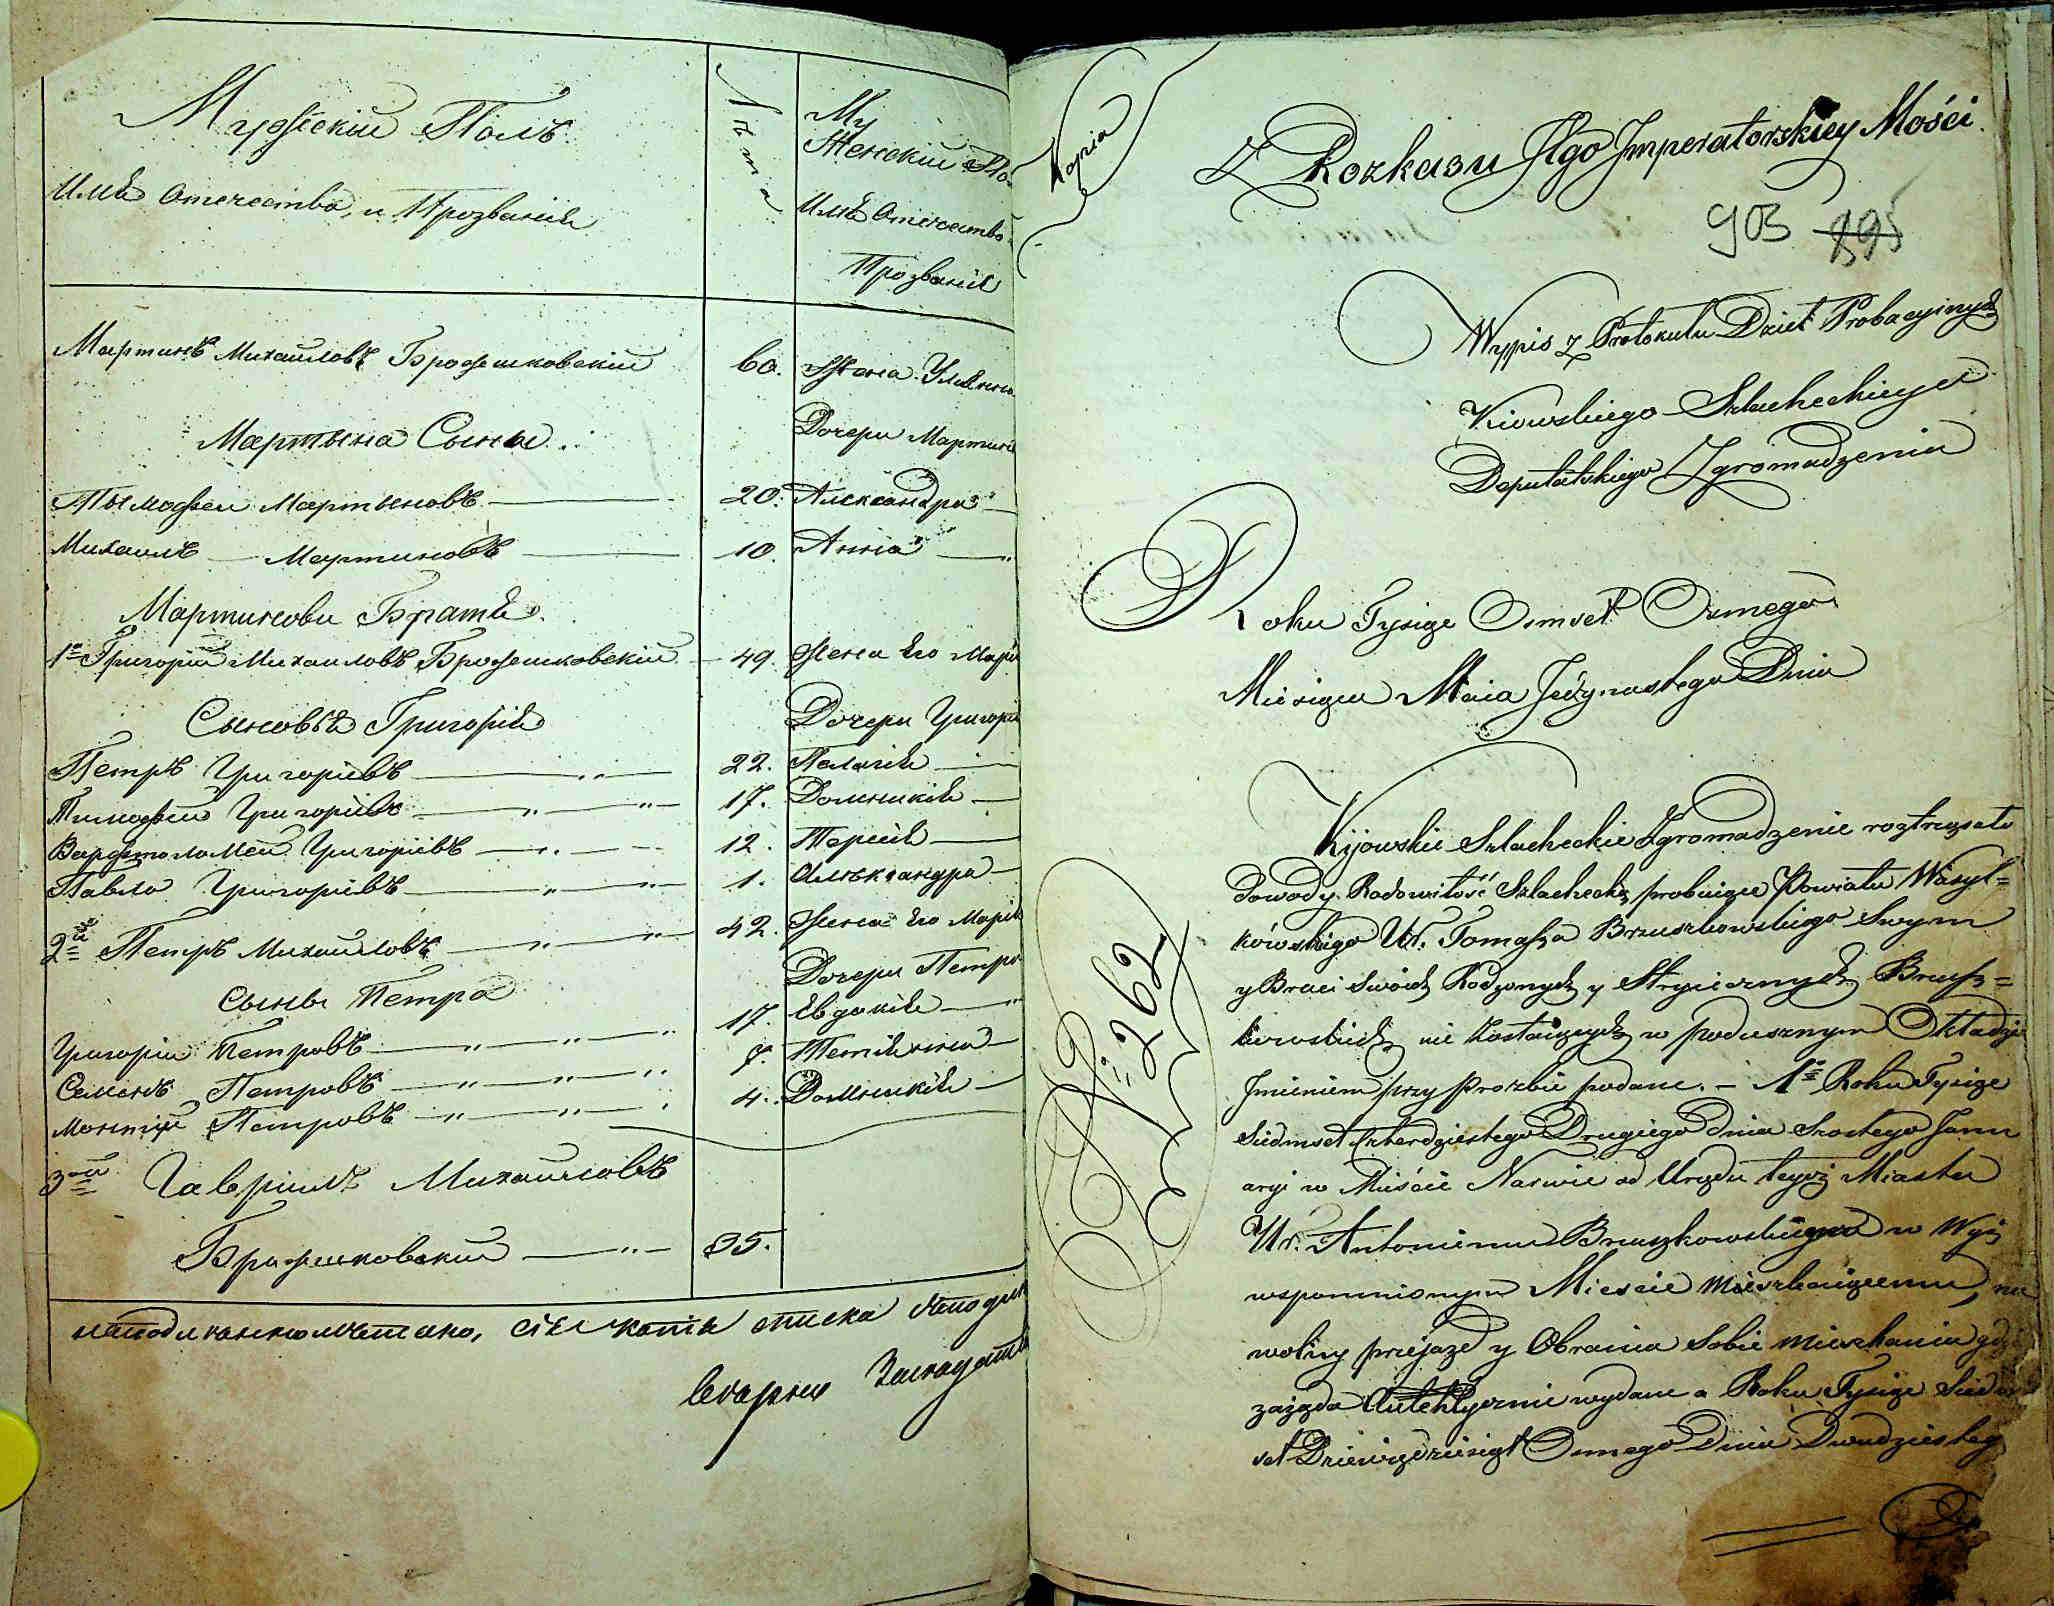 Мужескій Полъ
Имѣ Отечества, и Прозваніе
Лѣта
Му
Женскій По
Имѣ Отечество
Прозваніе
Мартинъ Михайловъ Бражешковскій 60. Жена Улѣяна
Мартына Сыны Дочери Мартина
Тымофей Мартыновъ 20. Александра
Михаилъ Мартиновъ 10. Анна
Мартинови Братѣ
1й Григорій Михаиловъ Бражешковскій 49. Жена Его Марі
Сыновѣя Григорія Дочери Григорі
Петръ Григоріевъ 22. Палагія
Тимофей Григоріевъ 17. Доминикія
Варфтоломей Григоріевъ 12. Терсія
Павло Григоріевъ 1. Алѣксандра
2й Петръ Михайловъ 42. Жена Его Марія
Сыны Петра Дочери Петра
Григорій Петровъ 17. Евдокія
Семенъ Петровъ 7. Тетіянна
Петровъ 4. Доминикія
3й Гавріилъ Михайловъ
Бражешковскій 35.
сія копія списка
Kopia
Z Rozkazu Jego Imperatorskiey Mości
903 895
Wypis z Protokułu Dzieł Probacyinych
Kiowskiego Szlacheckiego
Deputatskiego Zgromadzenia
Roku Tysiąc Osmset Osmego
Miesiąca Maia Jedynastego Dnia
Kijowskie Szlacheckie Zgromadzenie roztrząsało
dowody Rodowitość Szlachecką probuiące Powiatu Wasyl=
kówskiego Ur. Tomasza Bruszkowskiego Swym
y Braci Swoich Rodzonych y Stryiecznych Brusz=
kowskich nie Zostaiących w podusznym Okładzie
Jmieniem przy Prozbie podane. – 1e Roku Tysiąc
Siedmset Czterdziestego Drugiego dnia Szostego Janu
aryi w Mieście Narwie od Urzędu teyż Miasta
Ur. Antoniemu Bruszkowskiemu w wyż
wspomnionym Mieście Mieszkaiącemu, na
wolny przejazd y Obrania Sobie Mieszkania gdzie
zażąda Autehtycznie wydane a Roku Tysiąc Siedm
set Dziewięcdziesiąt Osmego Dnia Dwudziesteg
№ 262